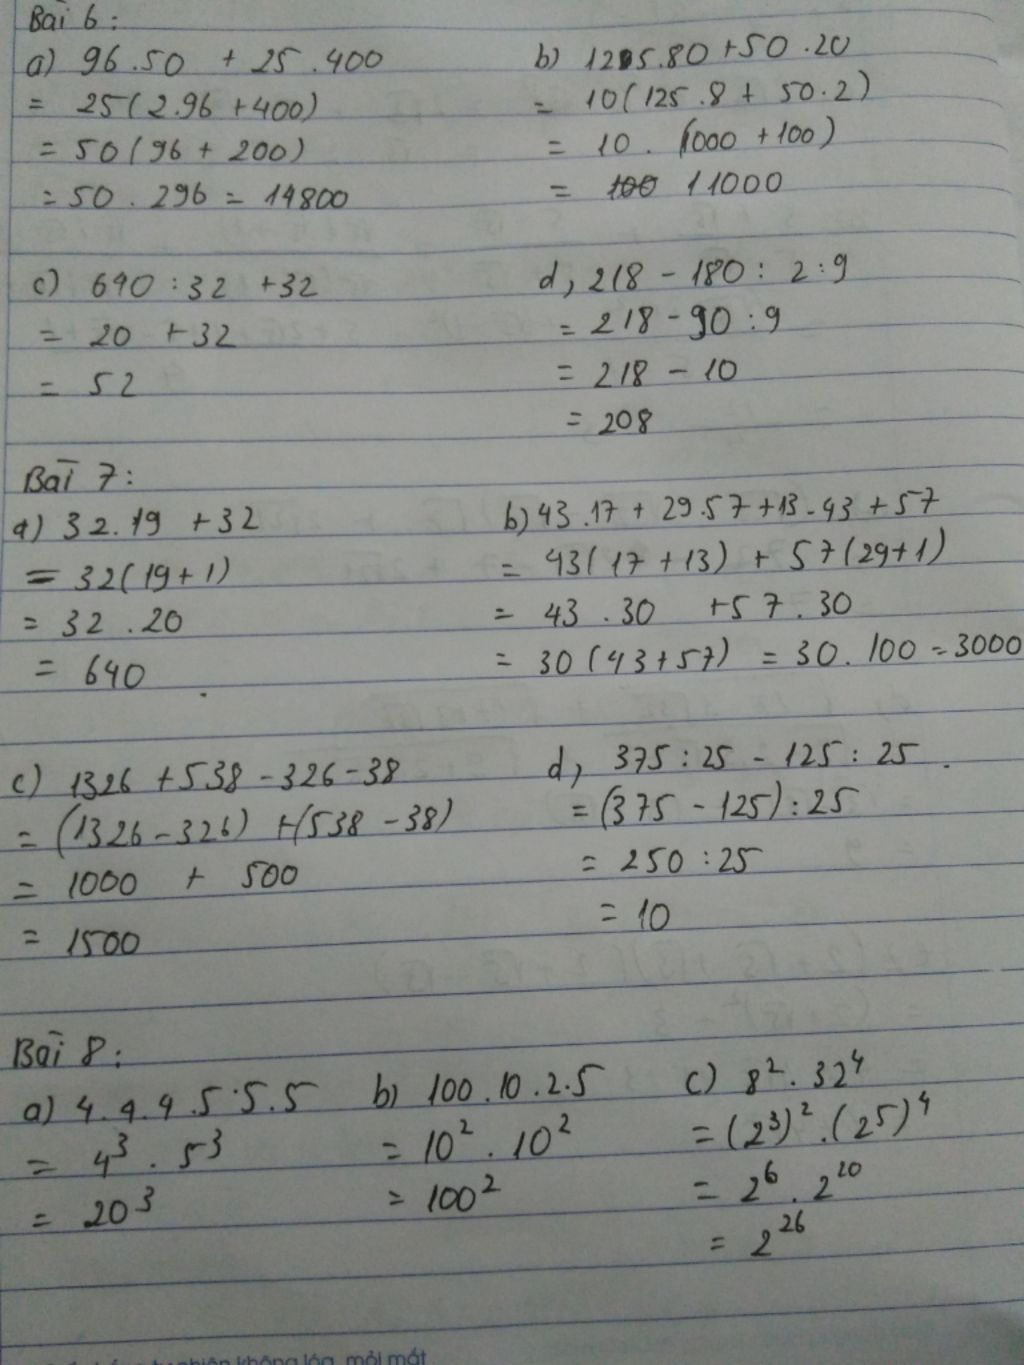 Bài 6:
a) 96.50 + 25.400
= 25(2.96 + 400)
= 50(96 + 200)
= 50.296 = 14800
b) 125.80 + 50.20
= 10(125.8 + 50.2)
= 10.(1000 + 100)
= 11000
c) 640:32 + 32
= 20 + 32
= 52
d, 218 - 180:2:9
= 218 - 90:9
= 218 - 10
= 208
Bài 7:
a) 32.19 + 32
= 32(19+1)
= 32.20
= 640
b) 43.17 + 29.57 + 13.43 + 57
= 43(17+13) + 57(29+1)
= 43.30 + 57.30
= 30(43+57) = 30.100 = 3000
c) 1326 + 538 - 326 - 38
= (1326 - 326) + (538 - 38)
= 1000 + 500
= 1500
d, 375:25 - 125:25
= (375 - 125):25
= 250:25
= 10
Bài 8:
a) 4.4.4.5.5.5
= 4³.5³
= 20³
b) 100.10.2.5
= 10².10²
= 100²
c) 8².32⁴
= (2³)².(2⁵)⁴
= 2⁶.2²⁰
= 2²⁶
không lóa, mỏi mắt